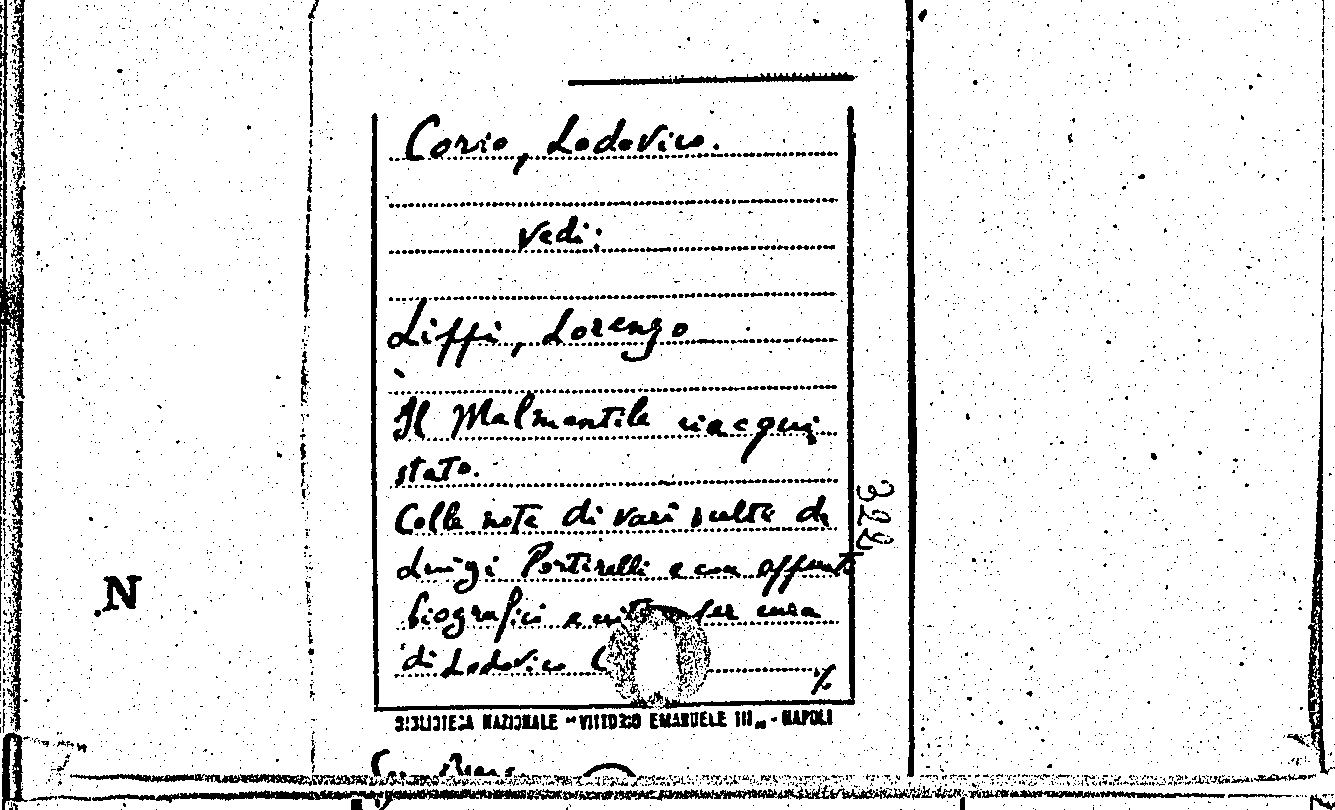 Corio, Lodovico.
vedi:
Lippi, Lorenzo
Il Malmantile riacqui
stato.
Colle note di vari scelte da
Luigi Portirelli e con appunti
biografici e critici per cura
di Lodovico C
%
322
N
BIBLIOTECA NAZIONALE "VITTORIO EMANUELE III" - NAPOLI